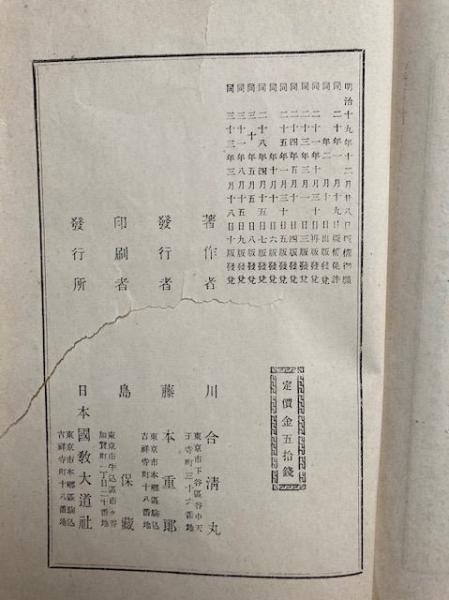 明治十九年十二月廿八日版權御願
同 二十年一月十九日版權免許
同 年二月十日出版發兌
同 二十一年十月三十日再版發兌
同 二十三年一月三日三版發兌
同 二十四年五月十日四版發兌
同 二十五年一月三十日五版發兌
同 年十月十六日六版發兌
同 二十八年四月十五日七版發兌
同 三十年五月五日八版發兌
同 三十一年八月十五日九版發兌
同 三十三年三月十八日十版發兌
定價金五拾錢
著作者 川合清丸
東京市下谷區谷中天
王寺町三十六番地
發行者 藤本重郎
東京市本鄉區駒込
吉祥寺町十八番地
印刷者 島保藏
東京市牛込區市ヶ谷
加賀町一丁目二十番地
發行所 日本國教大道社
東京市本鄉區駒込
吉祥寺町十八番地